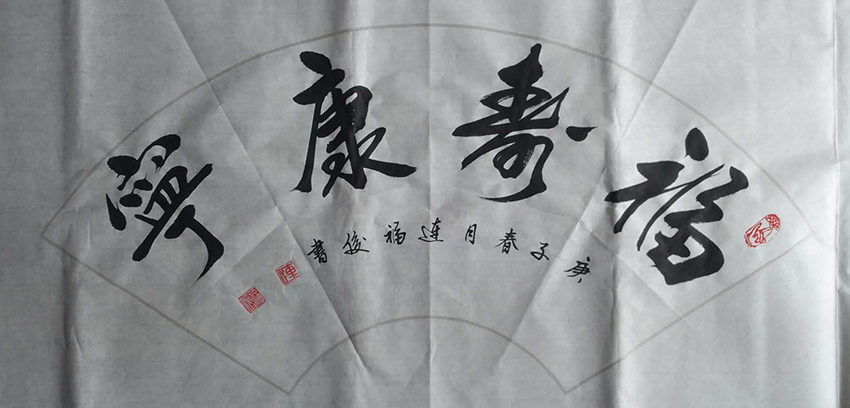 福寿康寧
庚子春月连福俊書